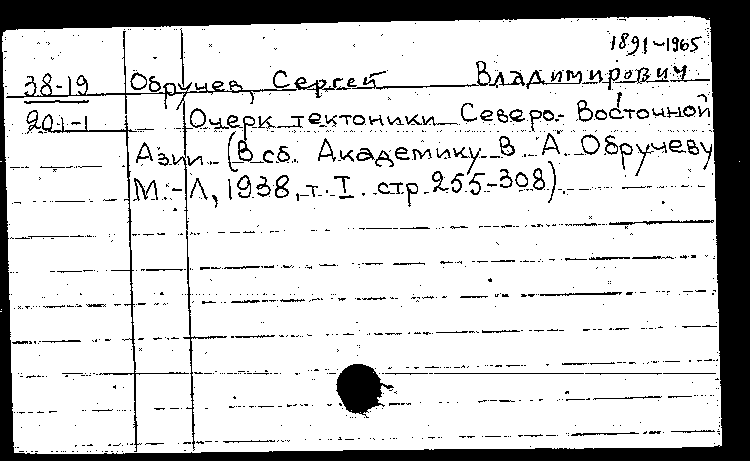 1891-1965
38-19 Обручев, Сергей Владимирович
201-1 Очерк тектоники Северо-Восточной
Азии (В сб. Академику В. А. Обручеву
М.-Л, 1938, т. I. стр. 255-308).